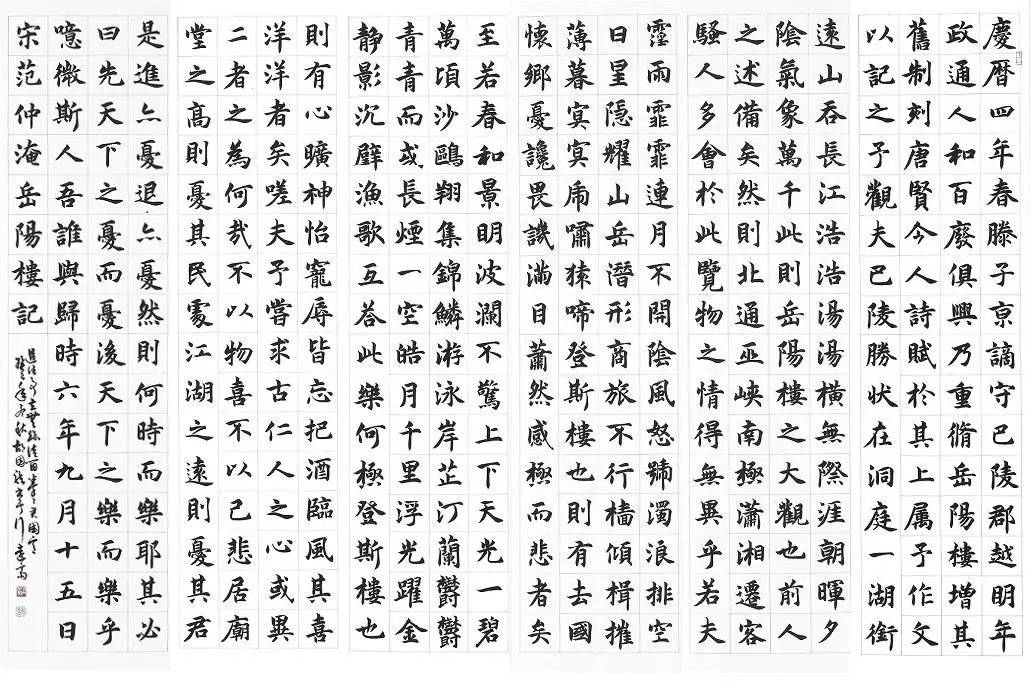 慶曆四年春滕子京謫守巴陵郡越明年
政通人和百廢俱興乃重脩岳陽樓增其
舊制刻唐賢今人詩賦於其上属予作文
以記之予觀夫巴陵勝状在洞庭一湖銜
遠山吞長江浩浩湯湯橫無際涯朝暉夕
陰氣象萬千此則岳陽樓之大觀也前人
之述備矣然則北通巫峽南極瀟湘遷客
騷人多會於此覽物之情得無異乎若夫
霪雨霏霏連月不開陰風怒號濁浪排空
日星隱耀山岳潛形商旅不行檣傾楫摧
薄暮冥冥虎嘯猿啼登斯樓也則有去國
懷鄉憂讒畏譏滿目蕭然感極而悲者矣
至若春和景明波瀾不驚上下天光一碧
萬頃沙鷗翔集錦鱗游泳岸芷汀蘭鬱鬱
青青而或長煙一空皓月千里浮光躍金
静影沉璧漁歌互答此樂何極登斯樓也
則有心曠神怡寵辱皆忘把酒臨風其喜
洋洋者矣嗟夫予嘗求古仁人之心或異
二者之為何哉不以物喜不以己悲居廟
堂之高則憂其民處江湖之遠則憂其君
是進亦憂退亦憂然則何時而樂耶其必
曰先天下之憂而憂後天下之樂而樂乎
噫微斯人吾誰與歸時六年九月十五日
宋范仲淹岳陽樓記